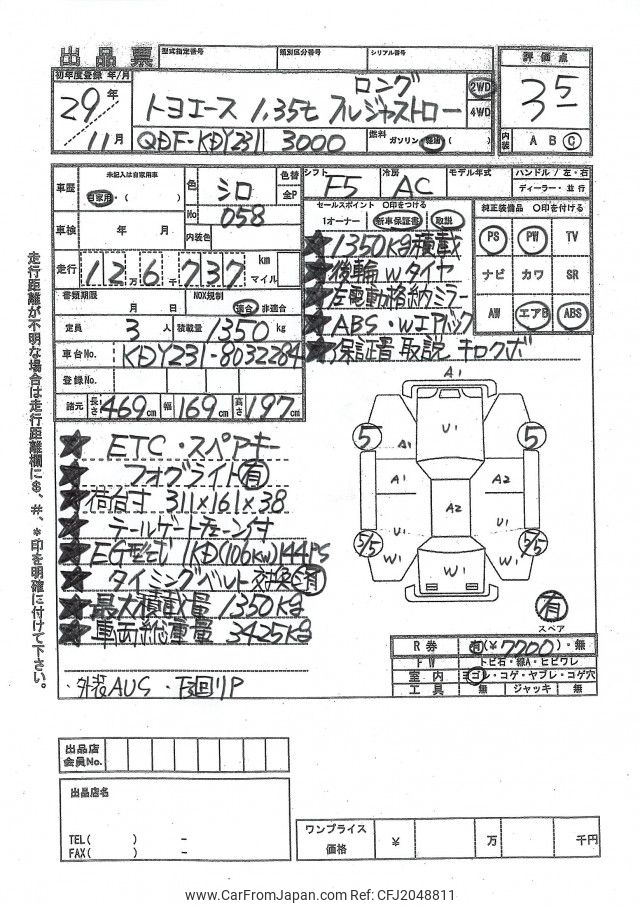 出品票 型式指定番号 類別区分番号 シリアル番号 評価点
初年度登録 年/月 ロング 2WD 4WD 3 5
29年 11月 トヨエース 1.35t フルジャストロー
QDF-KDY231 3000 燃料 ガソリン・軽油・( ) 内装 A B C
車歴 未記入は自家用車 自家用・( ) 色 シロ 色替 全P シフト F5 冷房 AC モデル年式 ハンドル/左・右 ディーラー・並行
No 058 内装色
車検 年 月
セールスポイント 〇印をつける
1オーナー 新車保証書 取説
純正装備品 〇印を付ける
PS PW TV
ナビ カワ SR
AW エアB ABS
走行 12万6千737 km マイル
★1350kg積載
★後輪Wタイヤ
★左電動格納ミラー
★ABS・Wエアバック
★保証書 取説 キロクボ
書類期限 月 日 NOX規制 適合・非適合
定員 3人 積載量 1350 kg
車台No. KDY231-8032284
登録No.
諸元 長さ 469cm 幅 169cm 高さ 197cm
走行距離が不明な場合は走行距離欄に$、#、*印を明確に付けて下さい。
★ETC・スペアキー
★フォグライト有
★荷台寸 311×161×38
★テールゲートチェーン付
★EG型式 1KD(106kw)144PS
★タイミングベルト 対象左有
★最大積載量 1350kg
★車両総重量 3425kg
・外装AUS・下回りP
A1
5 A1 U1 5
A1 A2 A2
5/5 U1 U1 5/5
W1 W1 W1
有
スペア
R券 有(¥7700)・無
FW トビ石・線A・ヒビワレ
室内 ヨゴレ・コゲ・ヤブレ・コゲ穴
工具 無 ジャッキ 無
出品店会員No.
出品店名
TEL( ) -
FAX( ) -
ワンプライス価格 ¥ 万 千円
www.CarFromJapan.com Ref: CFJ2048811